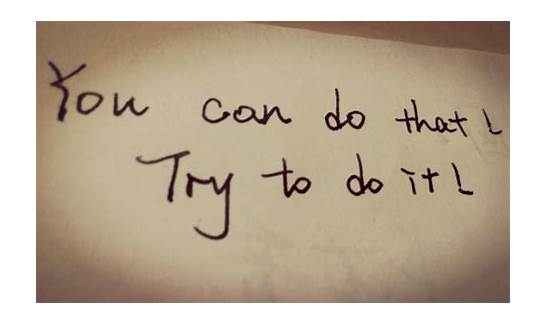 You can do that!
Try to do it!